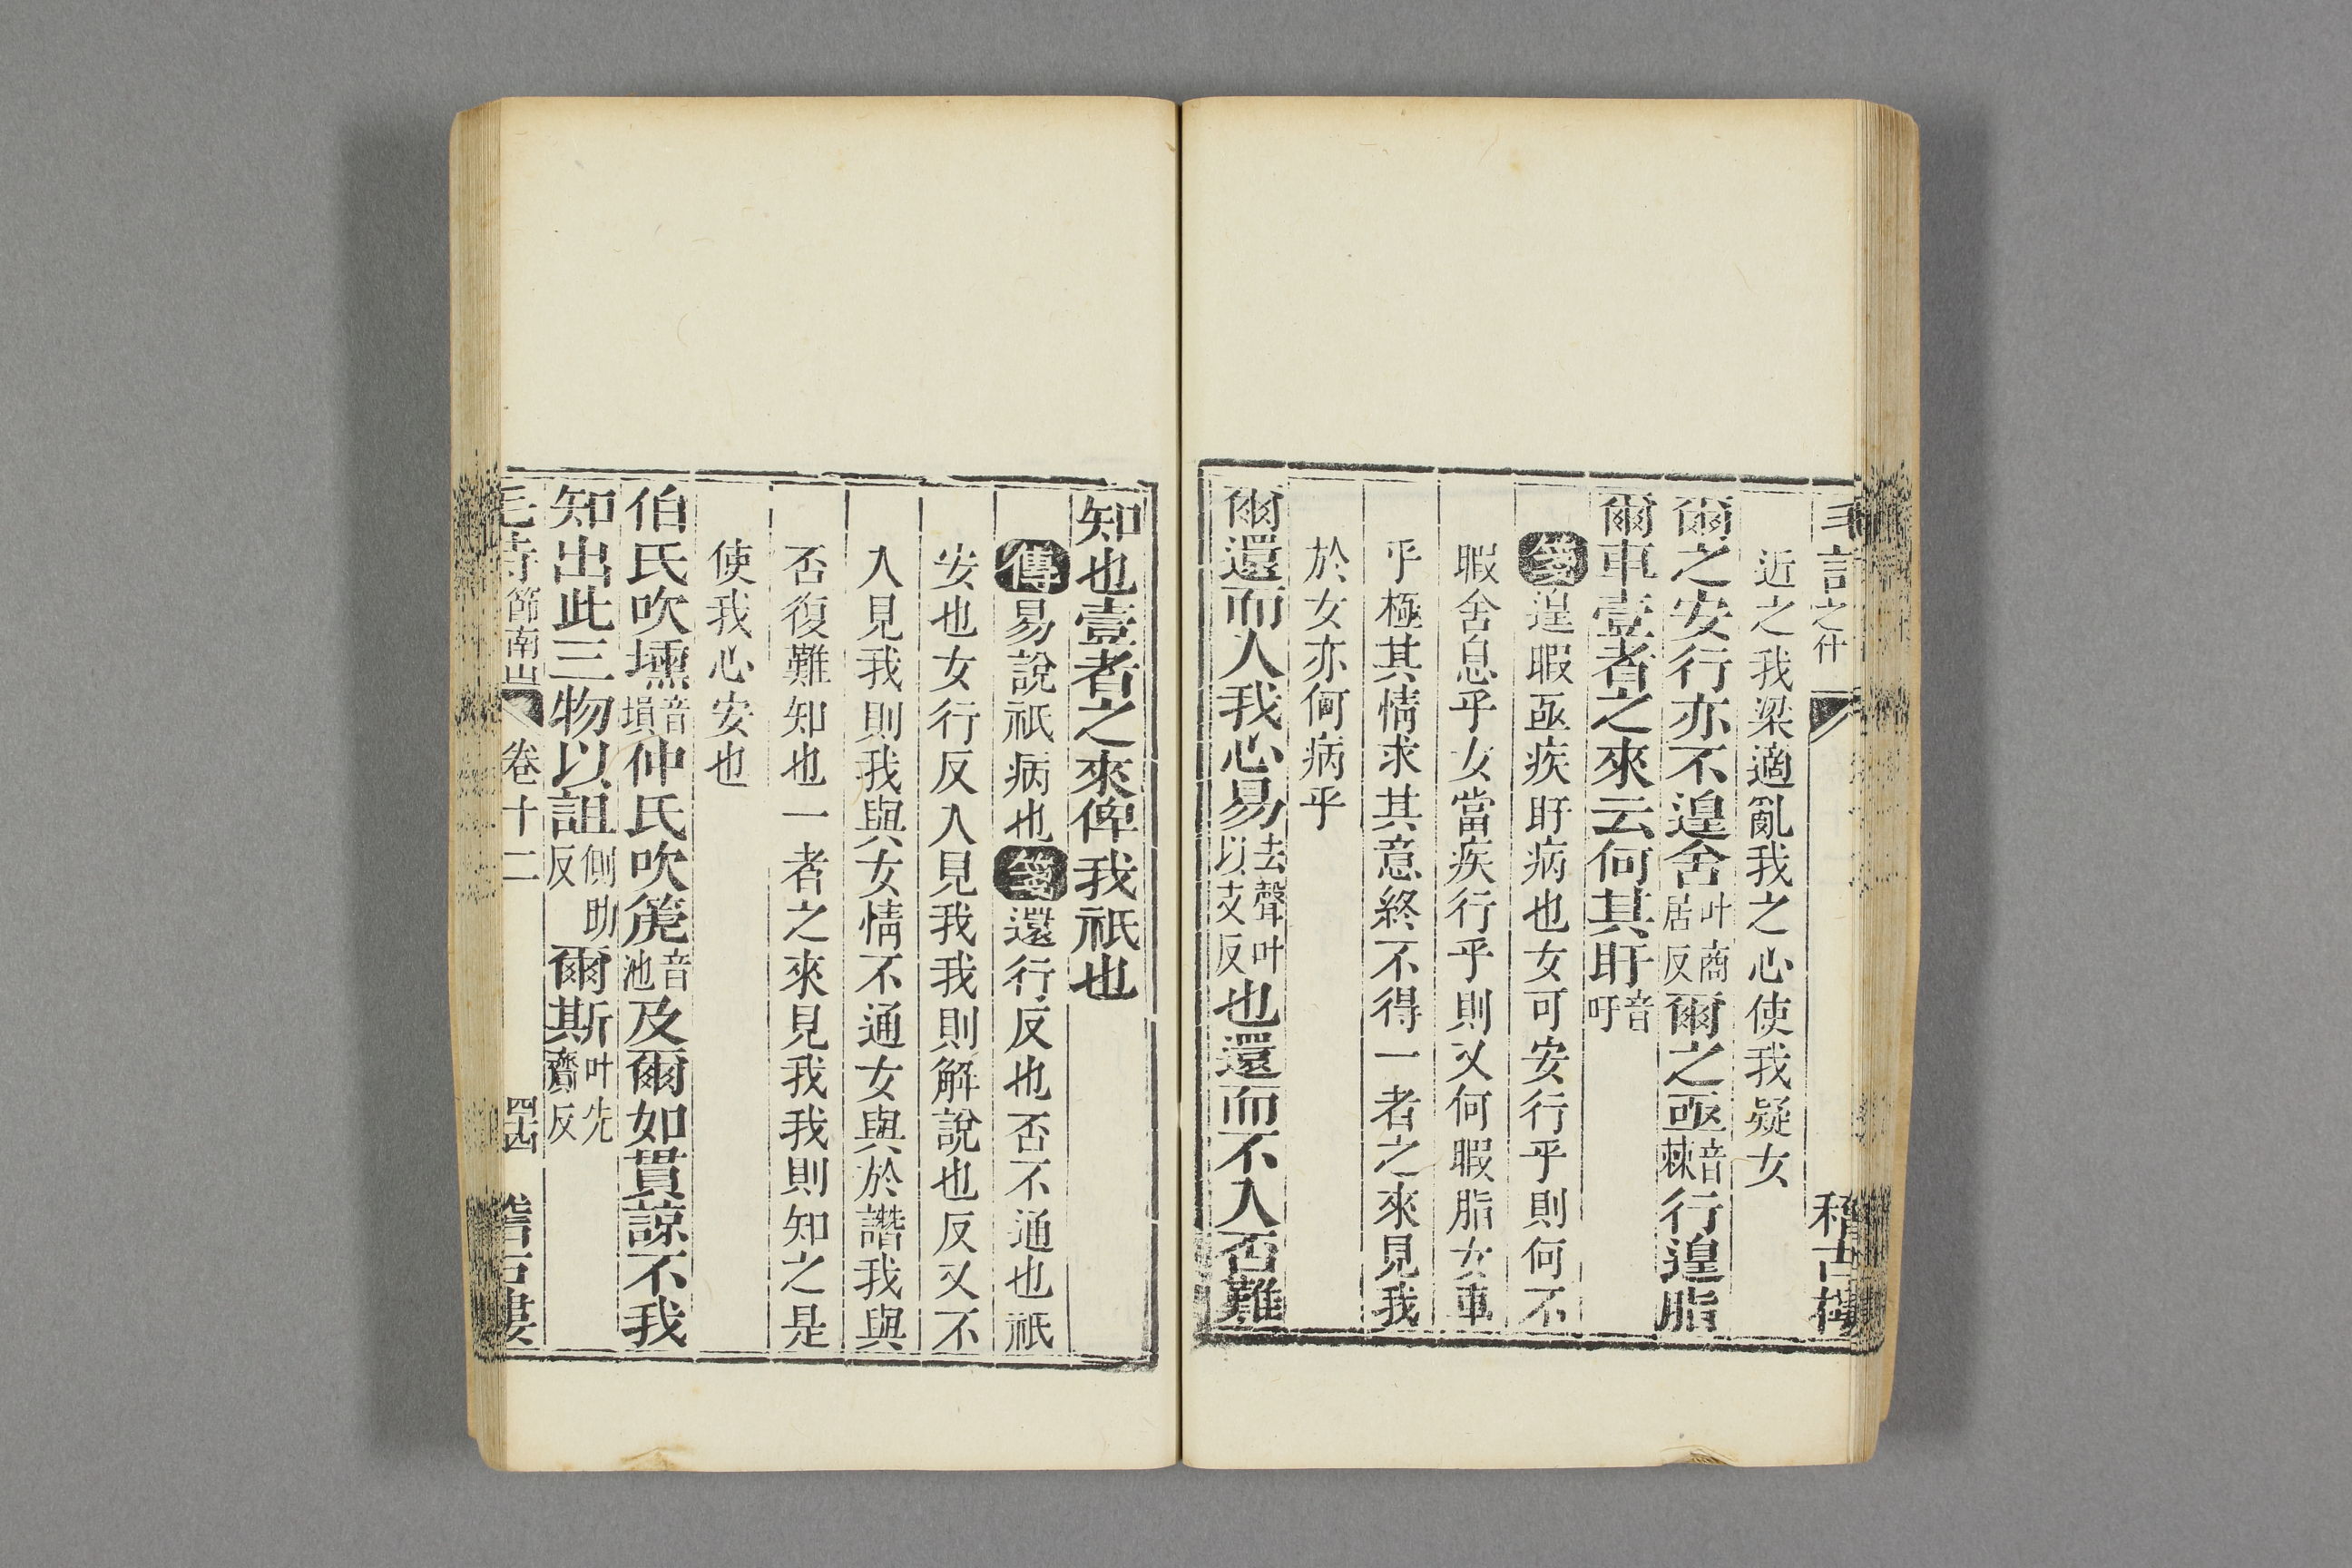 之什
近之我梁適亂我之心使我疑女
爾之安行亦不遑舍叶商居反爾之亟音棘行遑脂
爾車壹者之來云何其盱音吁
箋遑暇亟疾盱病也女可安行乎則何不
暇舍息乎女當疾行乎則又何暇脂女車
乎極其情求其意終不得一者之來見我
於女亦何病乎
爾還而入我心易去聲叶以支反也還而不入否難
知也壹者之來俾我祇也
傳易說祇病也箋還行反也否不通也祇
安也女行反入見我我則解說也反又不
入見我則我與女情不通女與於譖我與
否復難知也一者之來見我我則知之是
使我心安也
伯氏吹壎音塤仲氏吹篪音池及爾如貫諒不我
知出此三物以詛側助反爾斯叶先齎反
節南山 卷十二